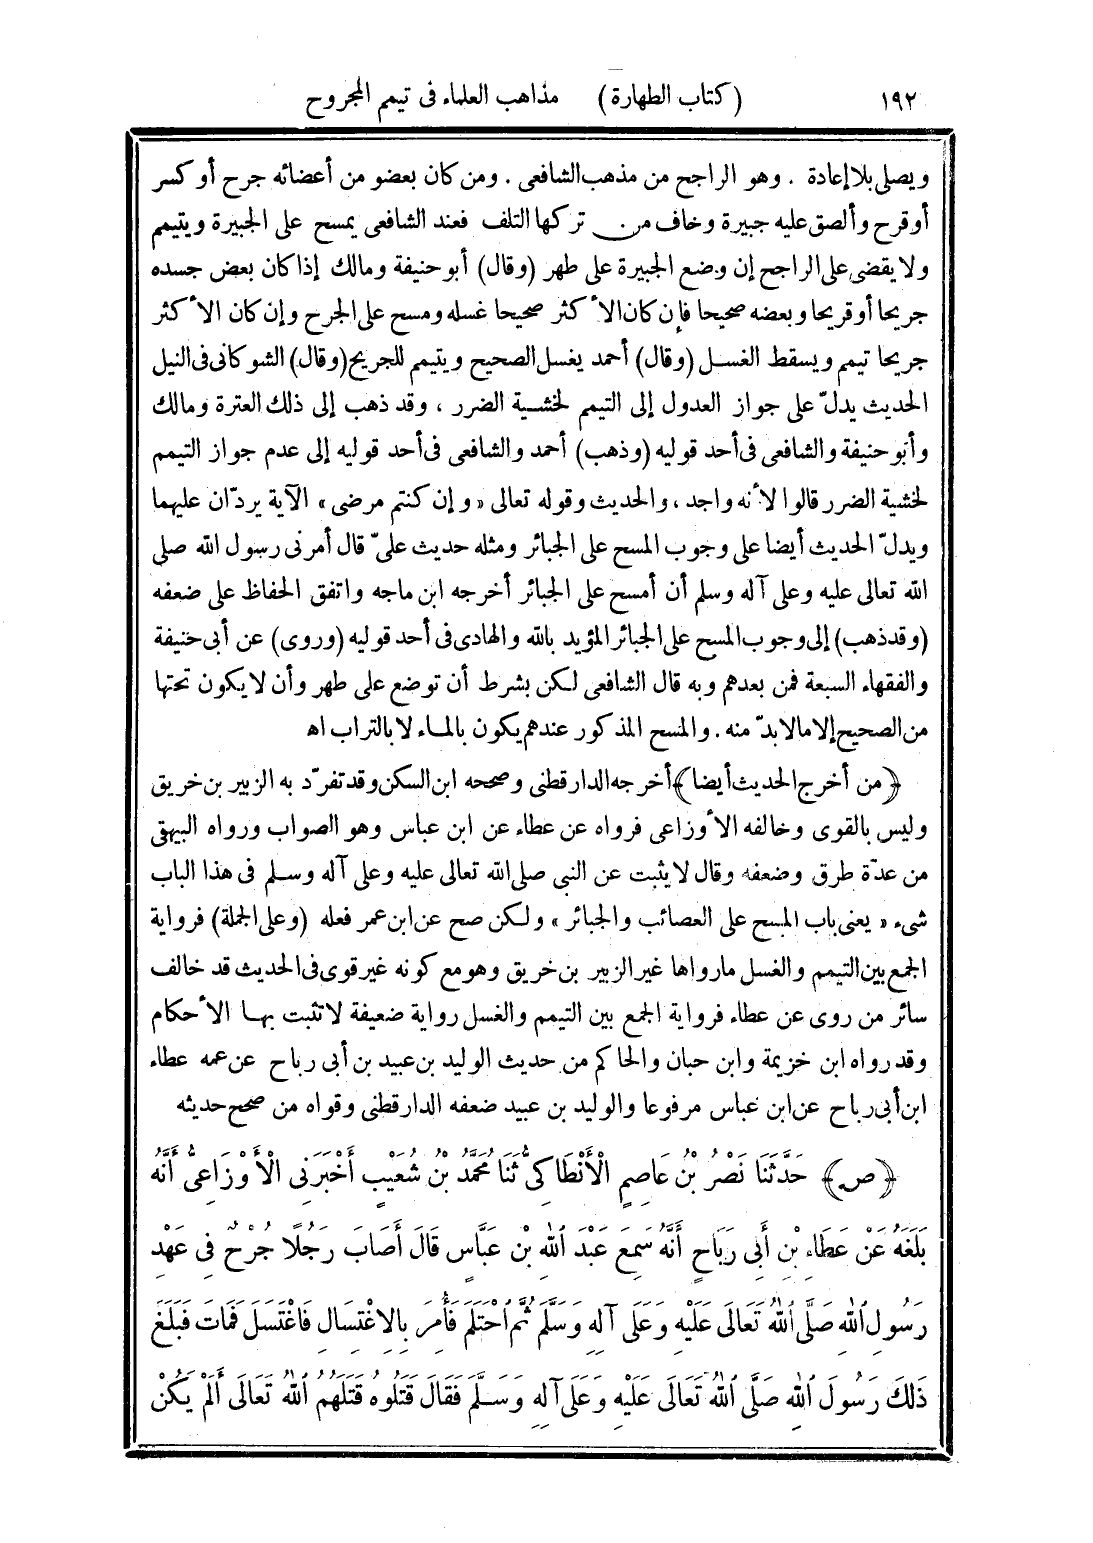 ١٩٢ (كتاب الطهارة) مذاهب العلماء فى تيمم المجروح
ويصلى بلا إعادة . وهو الراجح من مذهب الشافعى . ومن كان بعضو من أعضائه جرح أو كسر
أو قرح وألصق عليه جبيرة وخاف من تركها التلف فعند الشافعى يمسح على الجبيرة ويتيمم
ولا يقضى على الراجح إن وضع الجبيرة على طهر (وقال) أبو حنيفة ومالك إذا كان بعض جسده
جريحا أو قريحا وبعضه صحيحا فإن كان الأكثر صحيحا غسله ومسح على الجرح وإن كان الأكثر
جريحا تيمم ويسقط الغسل (وقال) أحمد يغسل الصحيح ويتيمم للجريح (وقال) الشوكانى فى النيل
الحديث يدلّ على جواز العدول إلى التيمم لخشية الضرر ، وقد ذهب إلى ذلك العترة ومالك
وأبو حنيفة والشافعى فى أحد قوليه (وذهب) أحمد والشافعى فى أحد قوليه إلى عدم جواز التيمم
لخشية الضرر قالوا لأنه واجد ، والحديث وقوله تعالى «وإن كنتم مرضى» الآية يردّان عليهما
ويدلّ الحديث أيضا على وجوب المسح على الجبائر ومثله حديث علىّ قال أمرنى رسول الله صلى
الله تعالى عليه وعلى آله وسلم أن أمسح على الجبائر أخرجه ابن ماجه واتفق الحفاظ على ضعفه
(وقد ذهب) إلى وجوب المسح على الجبائر المؤيد بالله والهادى فى أحد قوليه (وروى) عن أبى حنيفة
والفقهاء السبعة فمن بعدهم وبه قال الشافعى لكن بشرط أن توضع على طهر وأن لا يكون تحتها
من الصحيح إلا ما لا بدّ منه . والمسح المذكور عندهم يكون بالماء لا بالتراب اه
﴿من أخرج الحديث أيضا﴾ أخرجه الدارقطنى وصححه ابن السكن وقد تفرّد به الزبير بن خريق
وليس بالقوى وخالفه الأوزاعى فرواه عن عطاء عن ابن عباس وهو الصواب ورواه البيهقى
من عدّة طرق وضعفه وقال لا يثبت عن النبى صلى الله تعالى عليه وعلى آله وسلم فى هذا الباب
شىء «يعنى باب المسح على العصائب والجبائر» ولكن صح عن ابن عمر فعله (وعلى الجملة) فرواية
الجمع بين التيمم والغسل ما رواها غير الزبير بن خريق وهو مع كونه غير قوى فى الحديث قد خالف
سائر من روى عن عطاء فرواية الجمع بين التيمم والغسل رواية ضعيفة لا تثبت بها الأحكام
وقد رواه ابن خزيمة وابن حبان والحاكم من حديث الوليد بن عبيد بن أبى رباح عن عمه عطاء
ابن أبى رباح عن ابن عباس مرفوعا والوليد بن عبيد ضعفه الدارقطنى وقواه من صحح حديثه
﴿ص﴾ حَدَّثَنَا نَصْرُ بْنُ عَاصِمٍ الْأَنْطَاكِىُّ ثَنَا مُحَمَّدُ بْنُ شُعَيْبٍ أَخْبَرَنِى الْأَوْزَاعِىُّ أَنَّهُ
بَلَغَهُ عَنْ عَطَاءِ بْنِ أَبِى رَبَاحٍ أَنَّهُ سَمِعَ عَبْدَ اللهِ بْنَ عَبَّاسٍ قَالَ أَصَابَ رَجُلًا جُرْحٌ فِى عَهْدِ
رَسُولِ اللهِ صَلَّى اللهُ تَعَالَى عَلَيْهِ وَعَلَى آلِهِ وَسَلَّمَ ثُمَّ احْتَلَمَ فَأُمِرَ بِالِاغْتِسَالِ فَاغْتَسَلَ فَمَاتَ فَبَلَغَ
ذَلِكَ رَسُولَ اللهِ صَلَّى اللهُ تَعَالَى عَلَيْهِ وَعَلَى آلِهِ وَسَلَّمَ فَقَالَ قَتَلُوهُ قَتَلَهُمُ اللهُ تَعَالَى أَلَمْ يَكُنْ